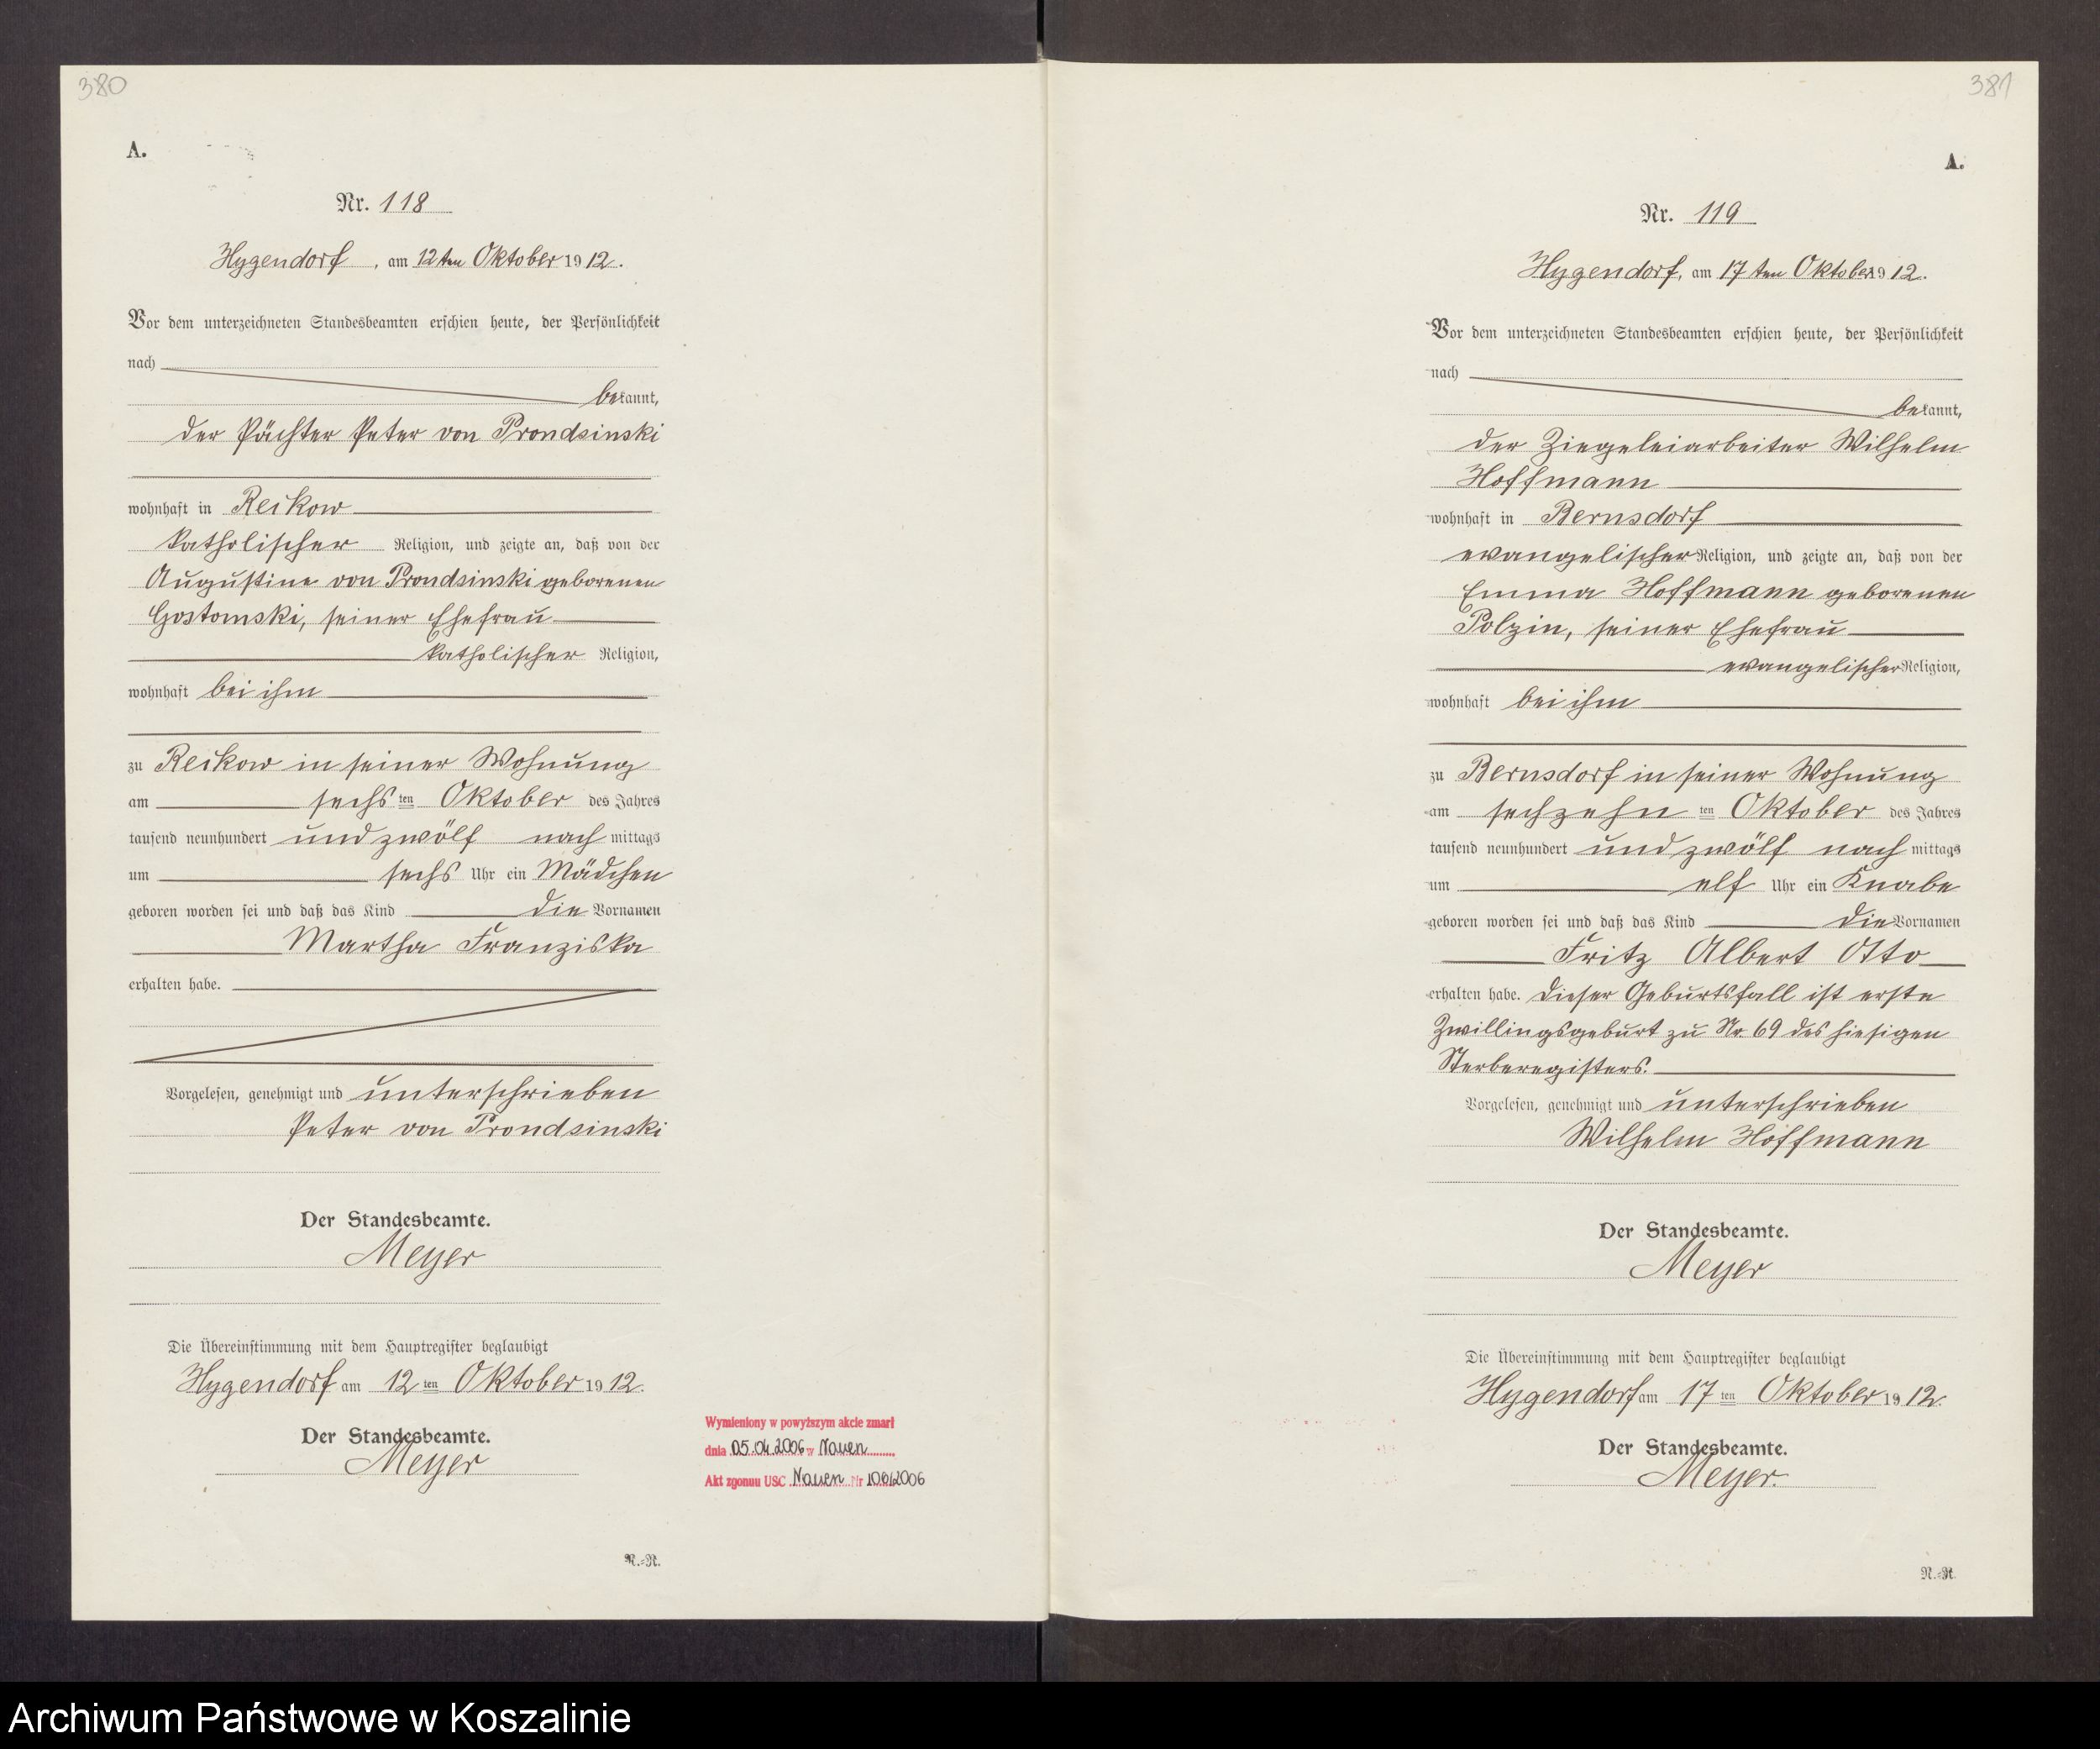 380
A.
Nr. 118
Hygendorf, am 12ten Oktober 1912.
Vor dem unterzeichneten Standesbeamten erschien heute, der Persönlichkeit
nach
bekannt,
der Pächter Peter von Prondsinski
wohnhaft in Reikow
katholischer Religion, und zeigte an, daß von der
Augustine von Prondsinski geborenen
Gostomski, seiner Ehefrau
katholischer Religion,
wohnhaft bei ihm
zu Reikow in seiner Wohnung
am sechsten Oktober des Jahres
tausend neunhundert und zwölf nachmittags
um sechs Uhr ein Mädchen
geboren worden sei und daß das Kind die Vornamen
Martha Franziska
erhalten habe.
Vorgelesen, genehmigt und unterschrieben
Peter von Prondsinski
Der Standesbeamte.
Meyer
Die Übereinstimmung mit dem Hauptregister beglaubigt
Hygendorf am 12ten Oktober 1912.
Der Standesbeamte.
Meyer
Wymieniony w powyższym akcie zmarł
dnia 05.04.2006 w Nauen
Akt zgonuu USC Nauen Nr 106/2006
R.=R.
381
A.
Nr. 119
Hygendorf, am 17ten Oktober 1912.
Vor dem unterzeichneten Standesbeamten erschien heute, der Persönlichkeit
nach
bekannt,
der Ziegeleiarbeiter Wilhelm
Hoffmann
wohnhaft in Bernsdorf
evangelischer Religion, und zeigte an, daß von der
Emma Hoffmann geborenen
Polzin, seiner Ehefrau
evangelischer Religion,
wohnhaft bei ihm
zu Bernsdorf in seiner Wohnung
am sechzehnten Oktober des Jahres
tausend neunhundert und zwölf nachmittags
um elf Uhr ein Knabe
geboren worden sei und daß das Kind die Vornamen
Fritz Albert Otto
erhalten habe. Dieser Geburtsfall ist erste
Zwillingsgeburt zu Nr. 69 des hiesigen
Sterberegisters.
Vorgelesen, genehmigt und unterschrieben
Wilhelm Hoffmann
Der Standesbeamte.
Meyer
Die Übereinstimmung mit dem Hauptregister beglaubigt
Hygendorf am 17ten Oktober 1912.
Der Standesbeamte.
Meyer.
R.=R.
Archiwum Państwowe w Koszalinie